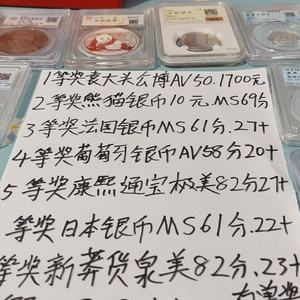 1等奖袁大头公博AV50.1700元
2.等奖熊猫银币10元.MS69分
3等奖法国银币MS61分.27+
4等奖葡萄牙银币AV58分20+
5等奖康熙通宝极美82分27+
等奖日本银币MS61分.22+
等奖新莽货泉美82分.23+